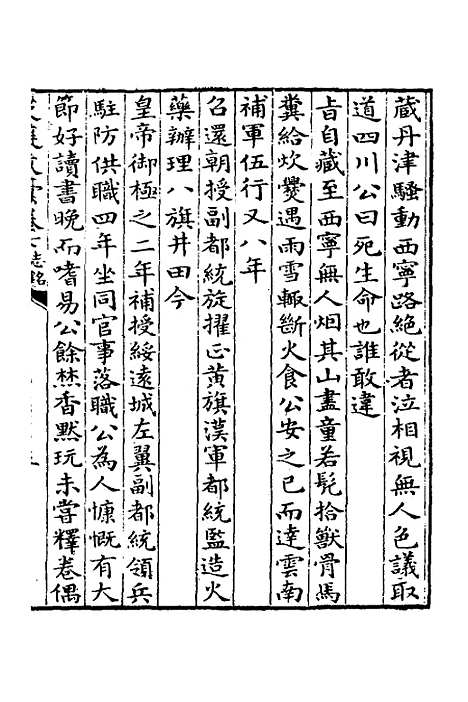 藏丹津騷動西寧路絕從者泣相視無人色議取
道四川公曰死生命也誰敢違
旨自藏至西寧無人烟其山盡童若髡拾獸骨馬
糞給炊爨遇雨雪輒斷火食公安之已而達雲南
補軍伍行又八年
召還朝授副都統旋擢正黄旗漢軍都統監造火
藥辦理八旗井田今
皇帝御極之二年補授綏遠城左翼副都統領兵
駐防供職四年坐同官事落職公為人慷慨有大
節好讀書晚而嗜易公餘焚香默玩未嘗釋卷偶